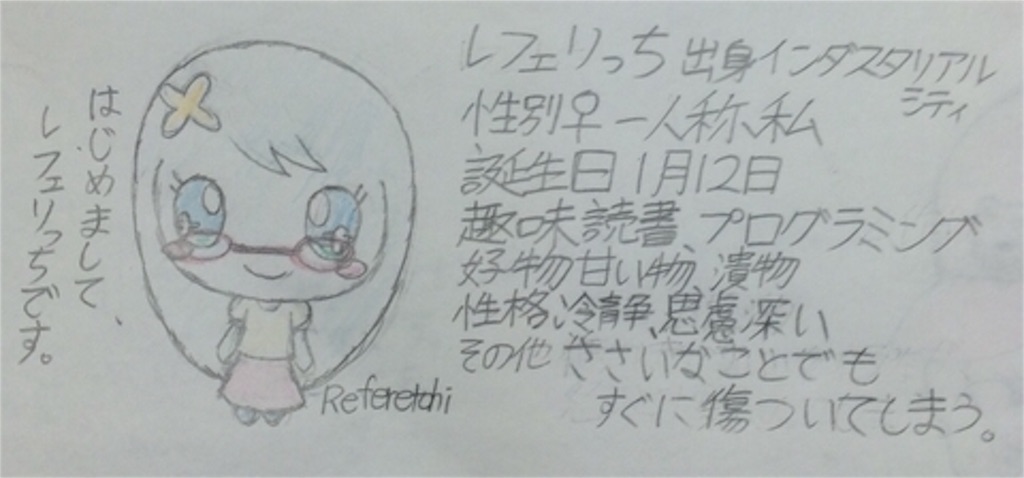 はじめまして、
レフェリっちです。
レフェりっち 出身インダスタリアル
シティ
性別♀ 一人称 私
誕生日 1月12日
趣味 読書、プログラミング
好物 甘い物、漬物
性格、冷静、思慮深い
その他 ささいなことでも
すぐに傷ついてしまう。
Referetchi